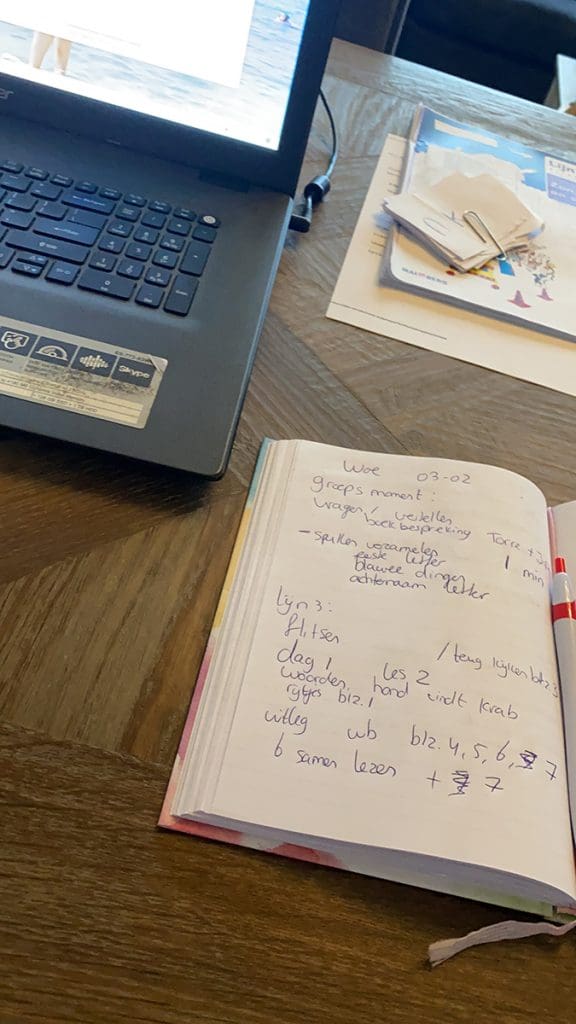 er
Skype
Lijn
MALMBERG
Woe 03-02
groeps moment:
vragen / vertellen
boekbespreking
- spullen verzamelen 1 min
eerste letter
blauwe dingen
achternaam letter
lijn 3:
flitsen
dag 1 les 2 / terug kijken blz. 3
woorden hond vindt krab
rijtjes blz. 1
uitleg wb blz. 4, 5, 6, 7
6 samen lezen + 7